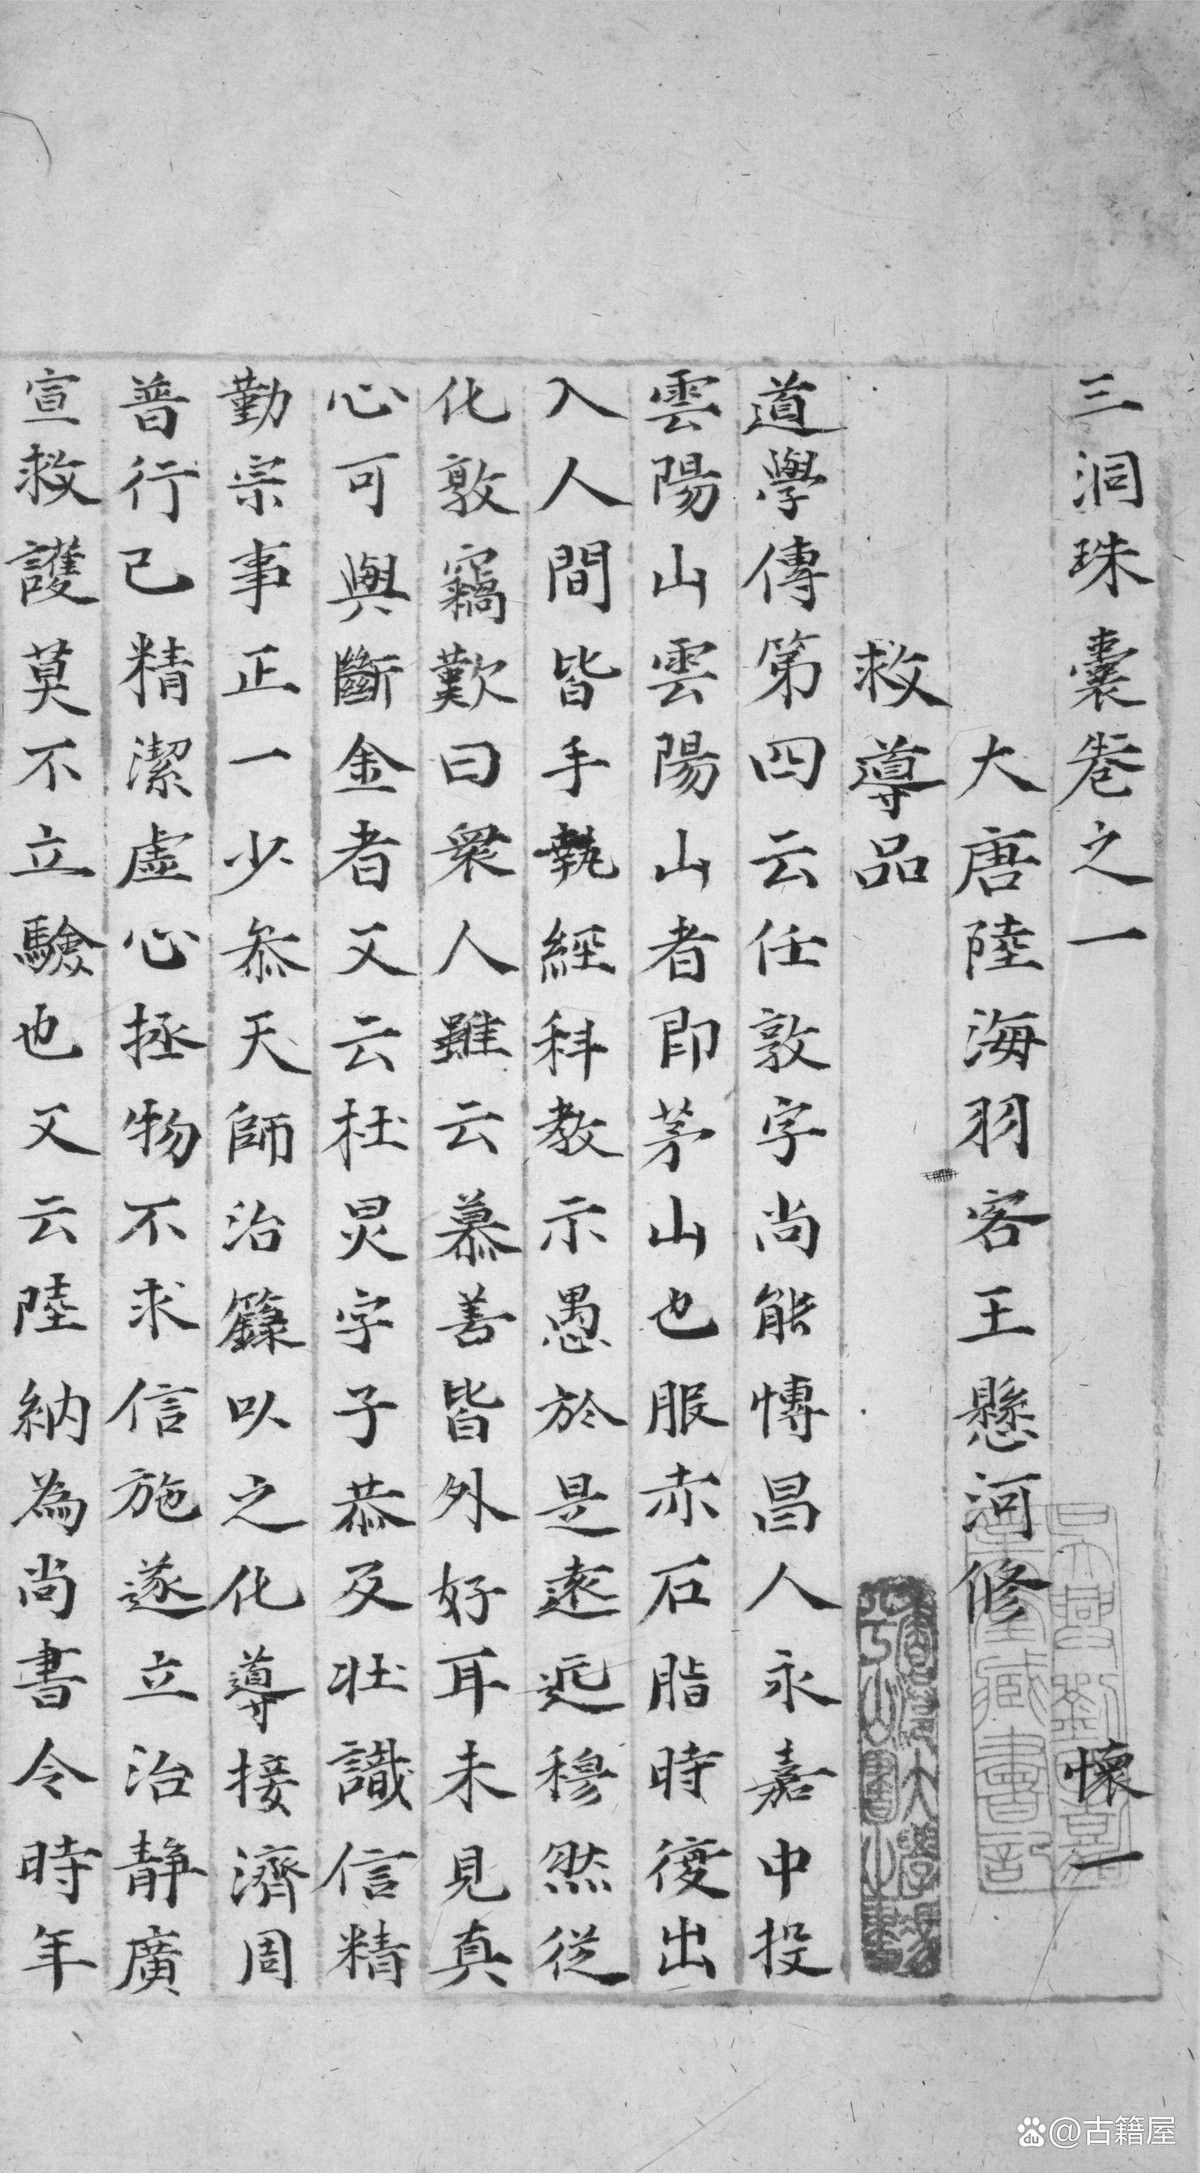 三洞珠囊卷之一 懷一
大唐陸海羽客王懸河修
救導品
道學傳第四云任敦字尚能博昌人永嘉中投
雲陽山雲陽山者即茅山也服赤石脂時復出
入人間皆手執經科教示愚於是遠近穆然從
化敦竊歎曰衆人雖云慕善皆外好耳未見真
心可與斷金者又云杜炅字子恭及壯識信精
勤宗事正一少參天師治籙以之化導接濟周
普行己精潔虛心拯物不求信施遂立治靜廣
宣救護莫不立驗也又云陸納為尚書令時年
@古籍屋